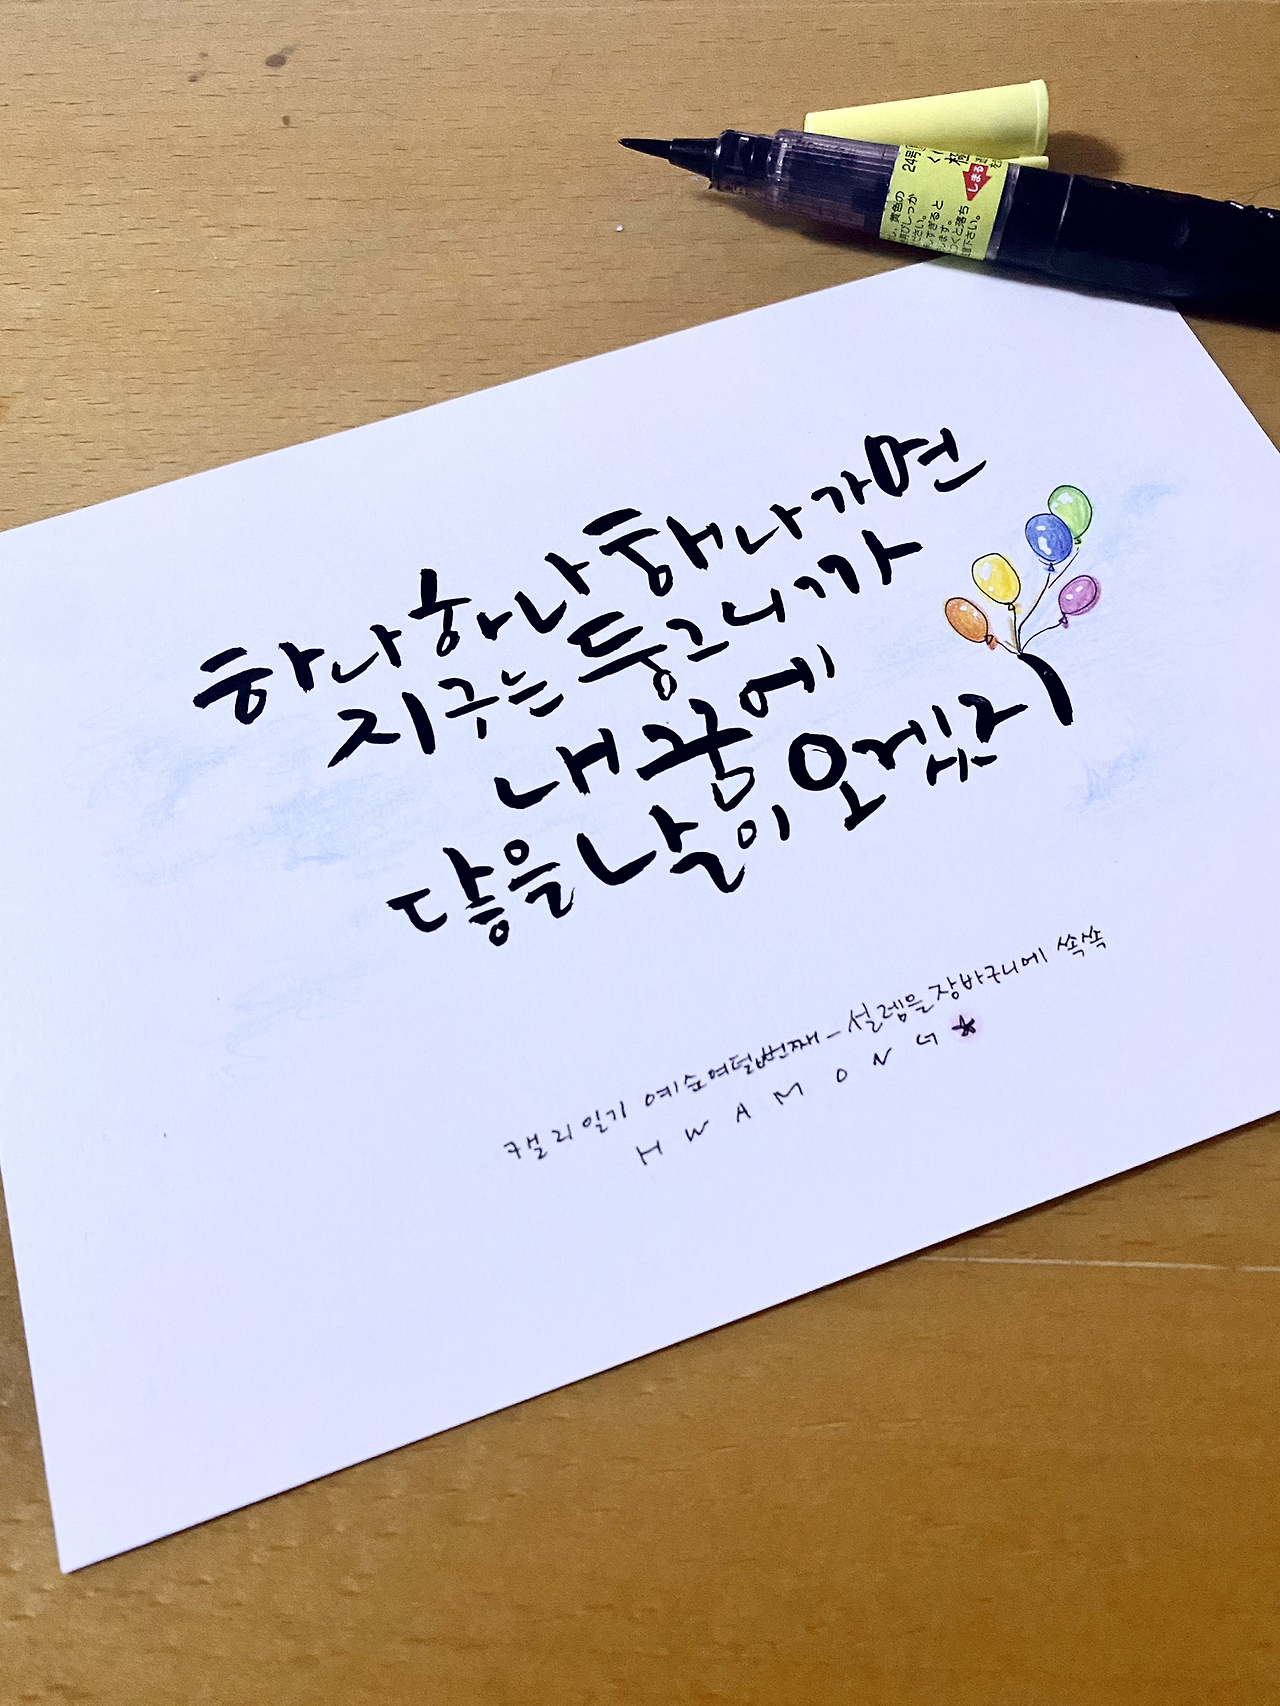 24号
しまる
하나하나 해나가면
지구는 둥그니까
내 꿈에
닿을 날이 오겠지
캘리일기 예순여덟번째 - 설렘을 장바구니에 쏙쏙
HWAMONG